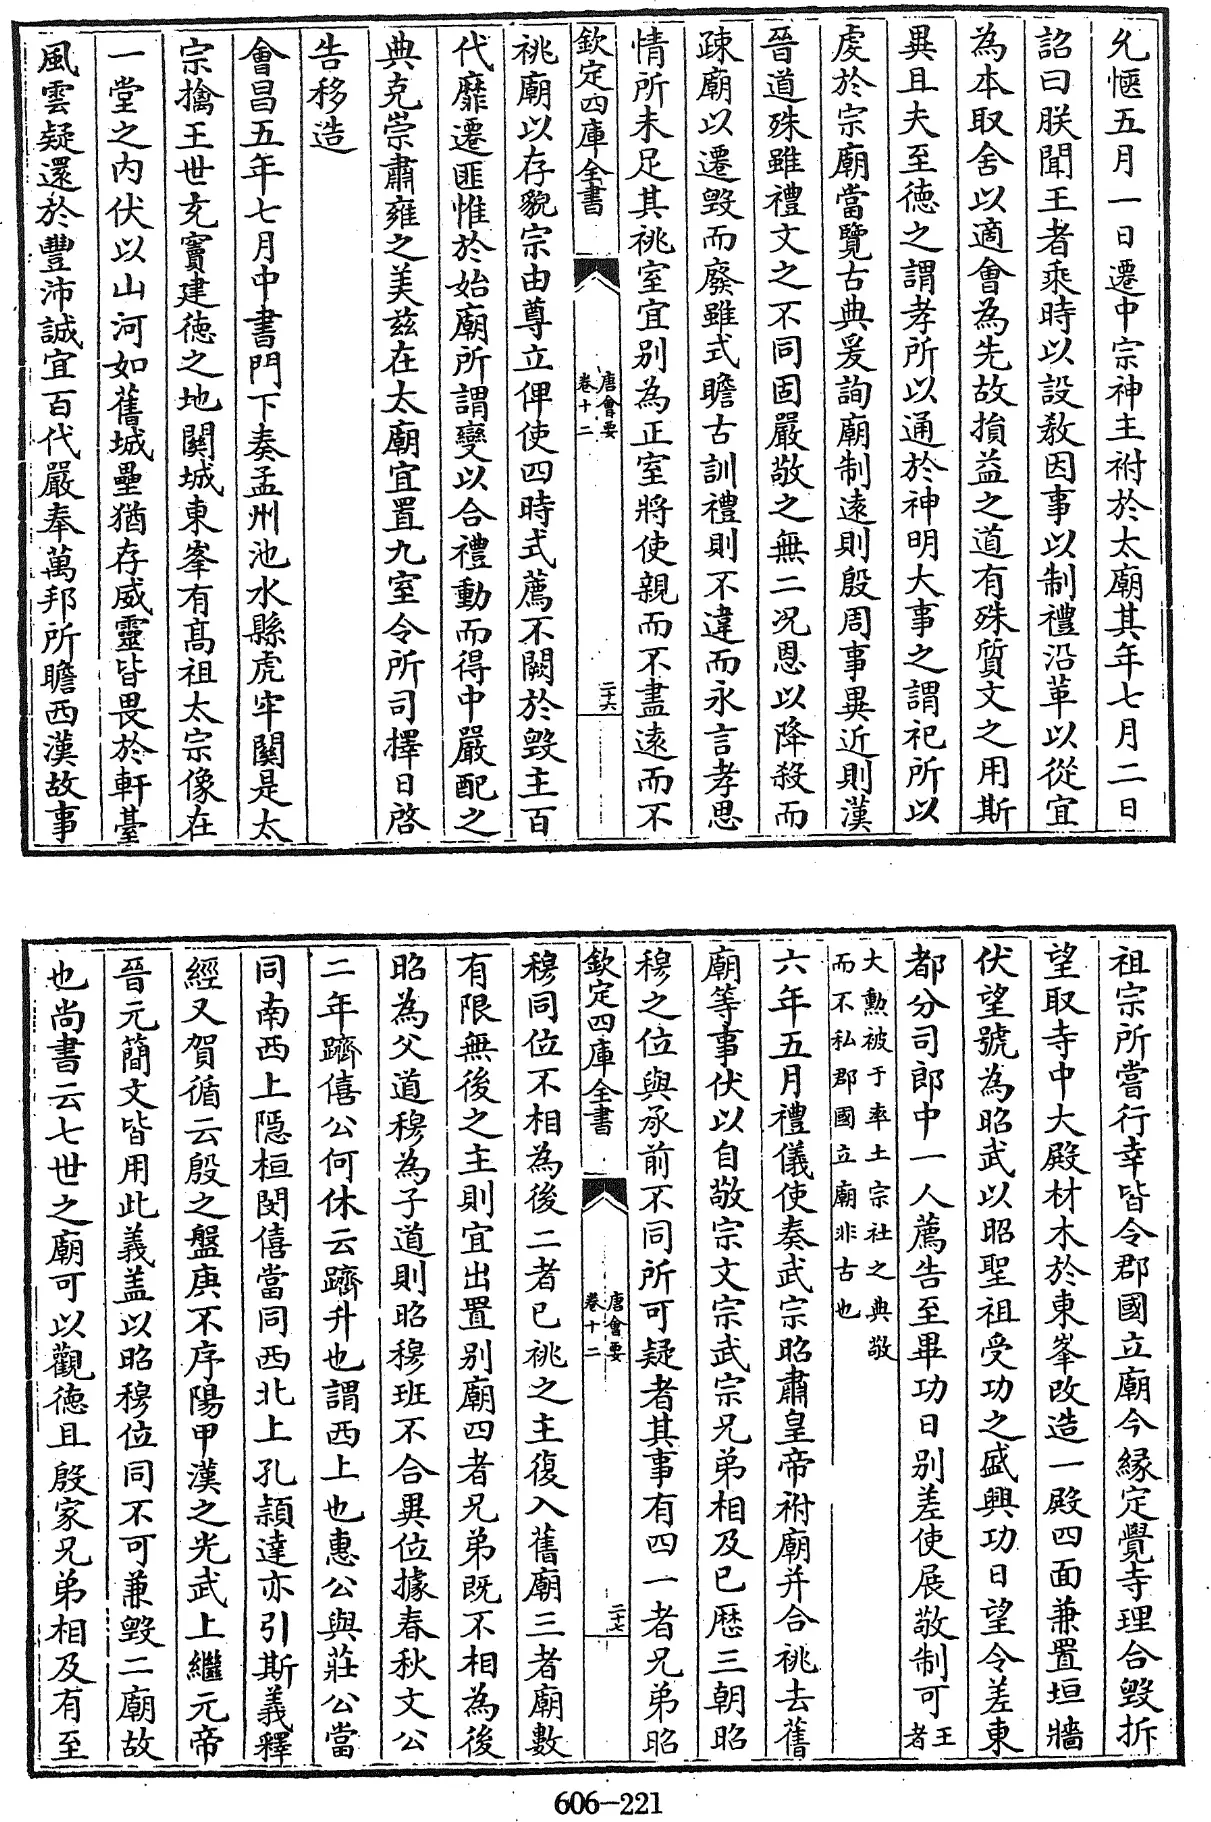 允愜五月一日遷中宗神主祔於太廟其年七月二日
詔曰朕聞王者乘時以設教因事以制禮沿革以從宜
為本取舍以適會為先故損益之道有殊質文之用斯
異且夫至徳之謂孝所以通於神明大事之謂祀所以
虔於宗廟當覽古典爰詢廟制遠則殷周事異近則漢
晉道殊雖禮文之不同固嚴敬之無二况恩以降殺而
疎廟以遷毀而廢雖式瞻古訓禮則不違而永言孝思
情所未足其祧室宜别為正室將使親而不盡遠而不
欽定四庫全書
唐會要
卷十二
二十六
祧廟以存貌宗由尊立俾使四時式薦不闕於毀主百
代靡遷匪惟於始廟所謂變以合禮動而得中嚴配之
典克崇肅雍之美兹在太廟宜置九室令所司擇日啓
告移造
會昌五年七月中書門下奏孟州池水縣虎牢關是太
宗擒王世充竇建徳之地闗城東峯有髙祖太宗像在
一堂之内伏以山河如舊城壘猶存威靈皆畏於軒臺
風雲疑還於豐沛誠宜百代嚴奉萬邦所瞻西漢故事
祖宗所嘗行幸皆令郡國立廟今縁定覺寺理合毀拆
望取寺中大殿材木於東峯改造一殿四面兼置垣牆
伏望號為昭武以昭聖祖受功之盛興功日望令差東
都分司郎中一人薦告至畢功日别差使展敬制可王者
大勲被于率土宗社之典敬
而不私郡國立廟非古也
六年五月禮儀使奏武宗昭肅皇帝祔廟并合祧去舊
廟等事伏以自敬宗文宗武宗兄弟相及已歴三朝昭
穆之位與承前不同所可疑者其事有四一者兄弟昭
欽定四庫全書
唐會要
卷十二
二十七
穆同位不相為後二者已祧之主復入舊廟三者廟數
有限無後之主則宜出置别廟四者兄弟既不相為後
昭為父道穆為子道則昭穆班不合異位據春秋文公
二年躋僖公何休云躋升也謂西上也惠公與莊公當
同南西上隱桓閔僖當同西北上孔頴達亦引斯義釋
經又賀循云殷之盤庚不序陽甲漢之光武上繼元帝
晉元簡文皆用此義盖以昭穆位同不可兼毀二廟故
也尚書云七世之廟可以觀徳且殷家兄弟相及有至
606-221